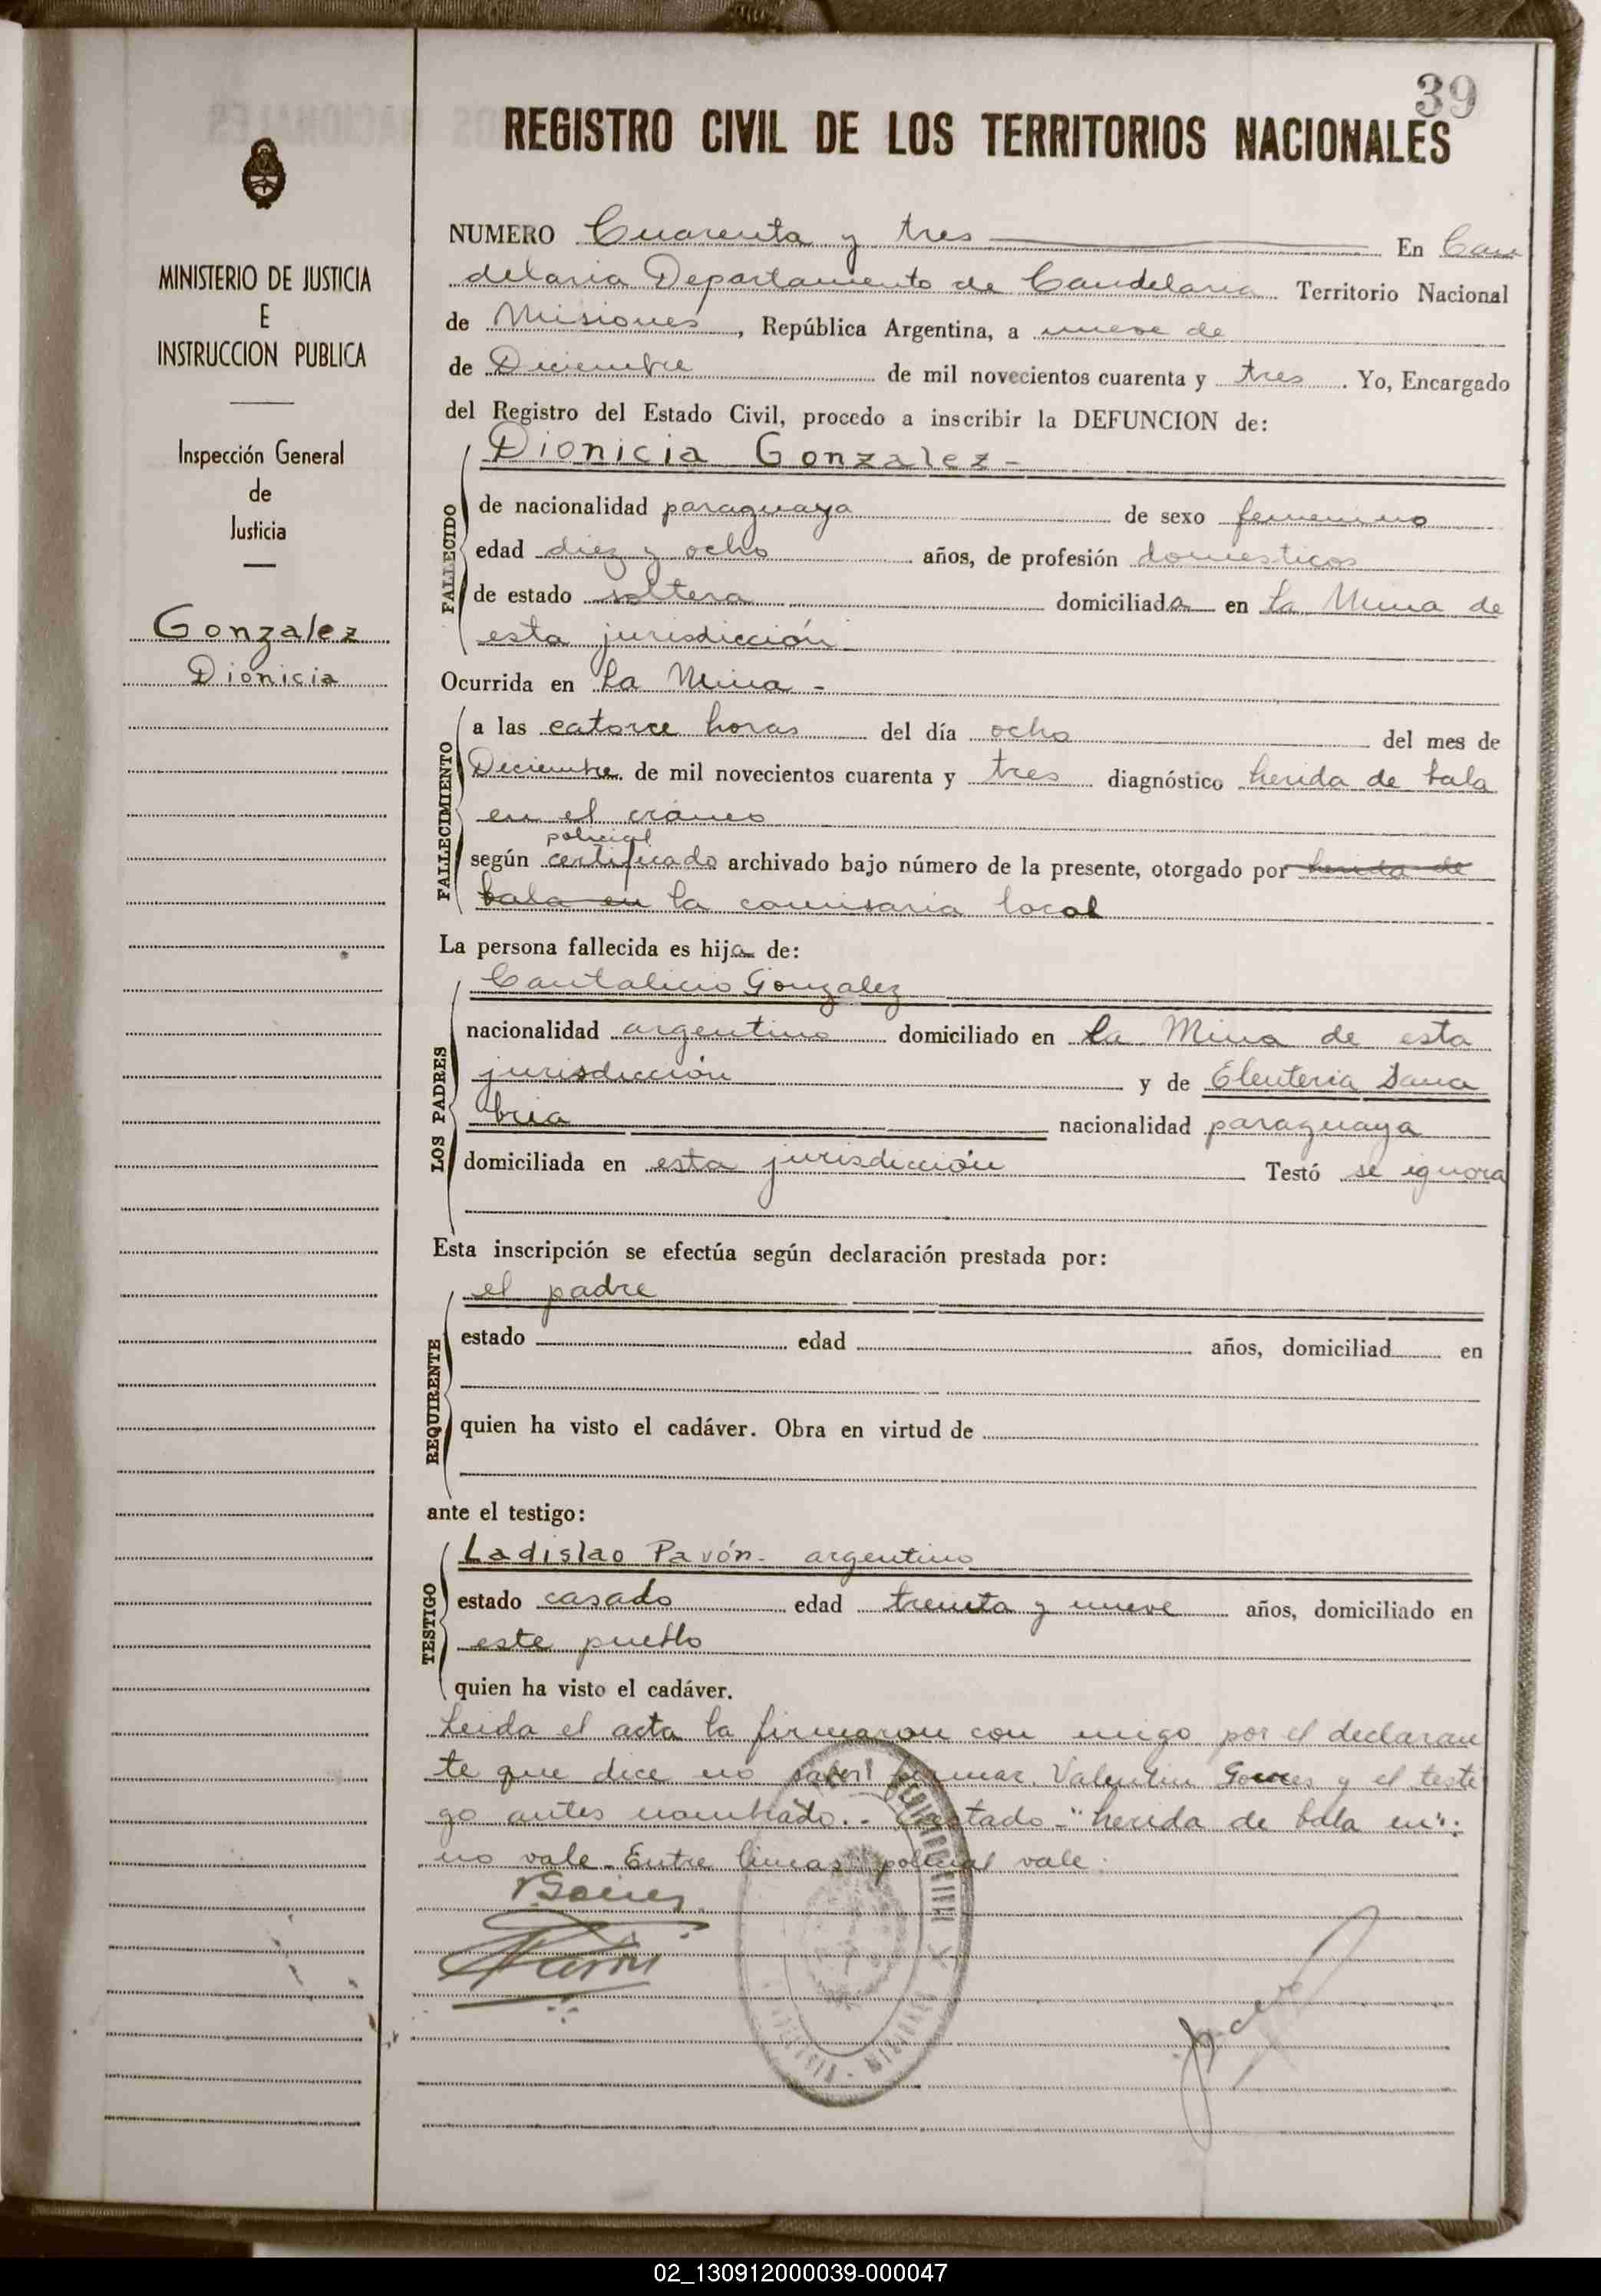 39
REGISTRO CIVIL DE LOS TERRITORIOS NACIONALES
MINISTERIO DE JUSTICIA
E
INSTRUCCION PUBLICA
Inspección General
de
Justicia
Gonzalez
Dionicia
NUMERO Cuarenta y tres En Can
delaria Departamento de Candelaria Territorio Nacional
de Misiones, República Argentina, a nueve de
de Diciembre de mil novecientos cuarenta y tres. Yo, Encargado
del Registro del Estado Civil, procedo a inscribir la DEFUNCION de:
FALLECIDO
Dionicia Gonzalez-
de nacionalidad paraguaya de sexo femenino
edad diez y ocho años, de profesión domesticos
de estado soltera domiciliada en La Mina de
esta jurisdicción
Ocurrida en La Mina -
FALLECIMIENTO
a las catorce horas del día ocho del mes de
Diciembre de mil novecientos cuarenta y tres diagnóstico herida de bala
en el cráneo
policial
según certificado archivado bajo número de la presente, otorgado por herida de
bala en la comisaria local
La persona fallecida es hija de:
LOS PADRES
Cantalicio Gonzalez
nacionalidad argentino domiciliado en La Mina de esta
jurisdicción y de Eleuteria Sana
bria nacionalidad paraguaya
domiciliada en esta jurisdicción Testó se ignora
Esta inscripción se efectúa según declaración prestada por:
REQUIRENTE
el padre
estado edad años, domiciliad en
quien ha visto el cadáver. Obra en virtud de
ante el testigo:
TESTIGO
Ladislao Pavón- argentino
estado casado edad treinta y nueve años, domiciliado en
este pueblo
quien ha visto el cadáver.
Leida el acta la firmaron con migo por el declaran
te que dice no saber firmar Valentin y el testi
go antes nombrado.- Testado-"herida de bala en":
no vale. Entre lineas policial vale.
02_130912000039-000047